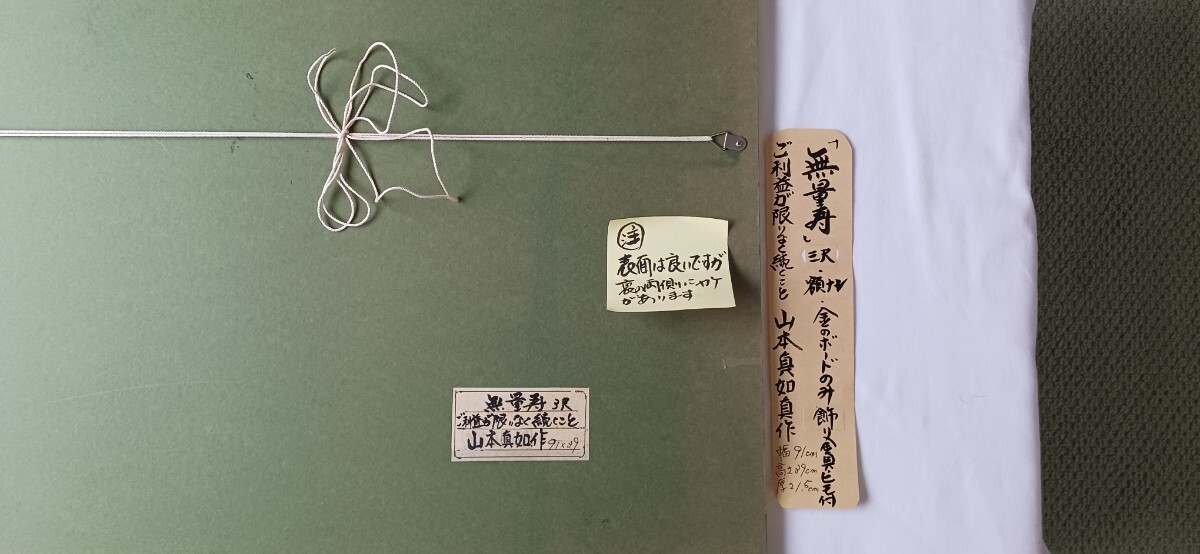 注
表面は良いですが
裏の両側にヤケ
があります
無量寿 3尺
ご利益が限りなく続くこと
山本真如作 91×89
「無量寿」三尺・額ナシ・金のボードのみ 飾り金具・ヒモ付
ご利益が限りなく続くこと 山本真如真作
幅91cm
高289cm
厚21.5cm